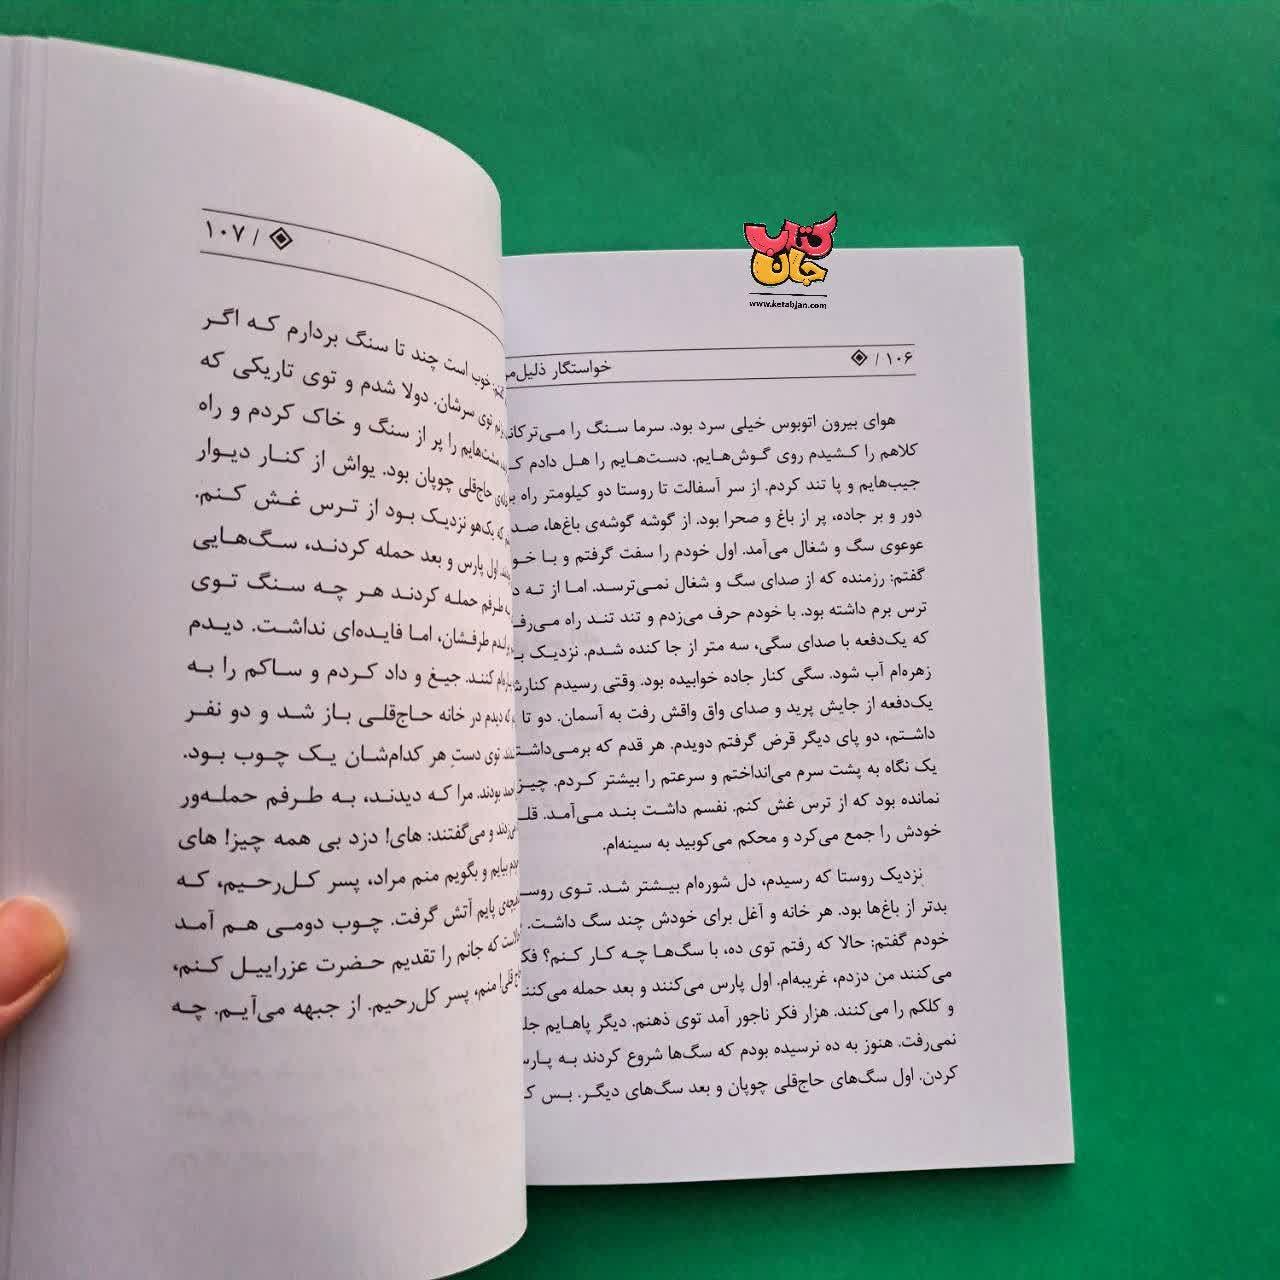 کتاب
جان
www.ketabjan.com
۱۰۶ /
خواستگار
هوای بیرون اتوبوس خیلی سرد بود. سرما سنگ را
کلاهم را کشیدم روی گوش‌هایم. دست‌هایم را هل دادم
جیب‌هایم و پا تند کردم. از سر آسفالت تا روستا دو کیلومتر راه
دور و بر جاده، پر از باغ و صحرا بود. از گوشه گوشه‌ی باغ‌ها،
عوعوی سگ و شغال می‌آمد. اول خودم را سفت گرفتم و با
گفتم: رزمنده که از صدای سگ و شغال نمی‌ترسد. اما از ته
ترس برم داشته بود. با خودم حرف می‌زدم و تند تند راه
که یک‌دفعه با صدای سگی، سه متر از جا کنده شدم. نزدیک
زهره‌ام آب شود. سگی کنار جاده خوابیده بود. وقتی رسیدم
یک‌دفعه از جایش پرید و صدای واق واقش رفت به آسمان. دو تا
داشتم، دو پای دیگر قرض گرفتم دویدم. هر قدم که
یک نگاه به پشت سرم می‌انداختم و سرعتم را بیشتر کردم.
نمانده بود که از ترس غش کنم. نفسم داشت بند می‌آمد.
خودش را جمع می‌کرد و محکم می‌کوبید به سینه‌ام.
نزدیک روستا که رسیدم، دل شوره‌ام بیشتر شد. توی
بدتر از باغ‌ها بود. هر خانه و آغل برای خودش چند سگ داشت.
خودم گفتم: حالا که رفتم توی ده، با سگ‌ها چه کار کنم؟
می‌کنند من دزدم، غریبه‌ام. اول پارس می‌کنند و بعد حمله
و کلکم را می‌کنند. هزار فکر ناجور آمد توی ذهنم. دیگر پاهایم
نمی‌رفت. هنوز به ده نرسیده بودم که سگ‌ها شروع کردند به
کردن. اول سگ‌های حاج‌قلی چوپان و بعد سگ‌های دیگر. بس
/ ۱۰۷
خوب است چند تا سنگ بردارم که اگر
توی سرشان. دولا شدم و توی تاریکی که
مشت‌هایم را پر از سنگ و خاک کردم و راه
حاج‌قلی چوپان بود. یواش از کنار دیوار
که یک‌هو نزدیک بود از ترس غش کنم.
اول پارس و بعد حمله کردند، سگ‌هایی
طرفم حمله کردند هر چه سنگ توی
طرفشان، اما فایده‌ای نداشت. دیدم
کنند. جیغ و داد کردم و ساکم را به
که دیدم در خانه حاج‌قلی باز شد و دو نفر
توی دستِ هر کدام‌شان یک چوب بود.
بودند. مرا که دیدند، به طرفم حمله‌ور
و می‌گفتند: های! دزد بی همه چیز! های
بیایم و بگویم منم مراد، پسر کل‌رحیم، که
پایم آتش گرفت. چوب دومی هم آمد
که جانم را تقدیم حضرت عزراییل کنم،
منم، پسر کل‌رحیم. از جبهه می‌آیم. چه